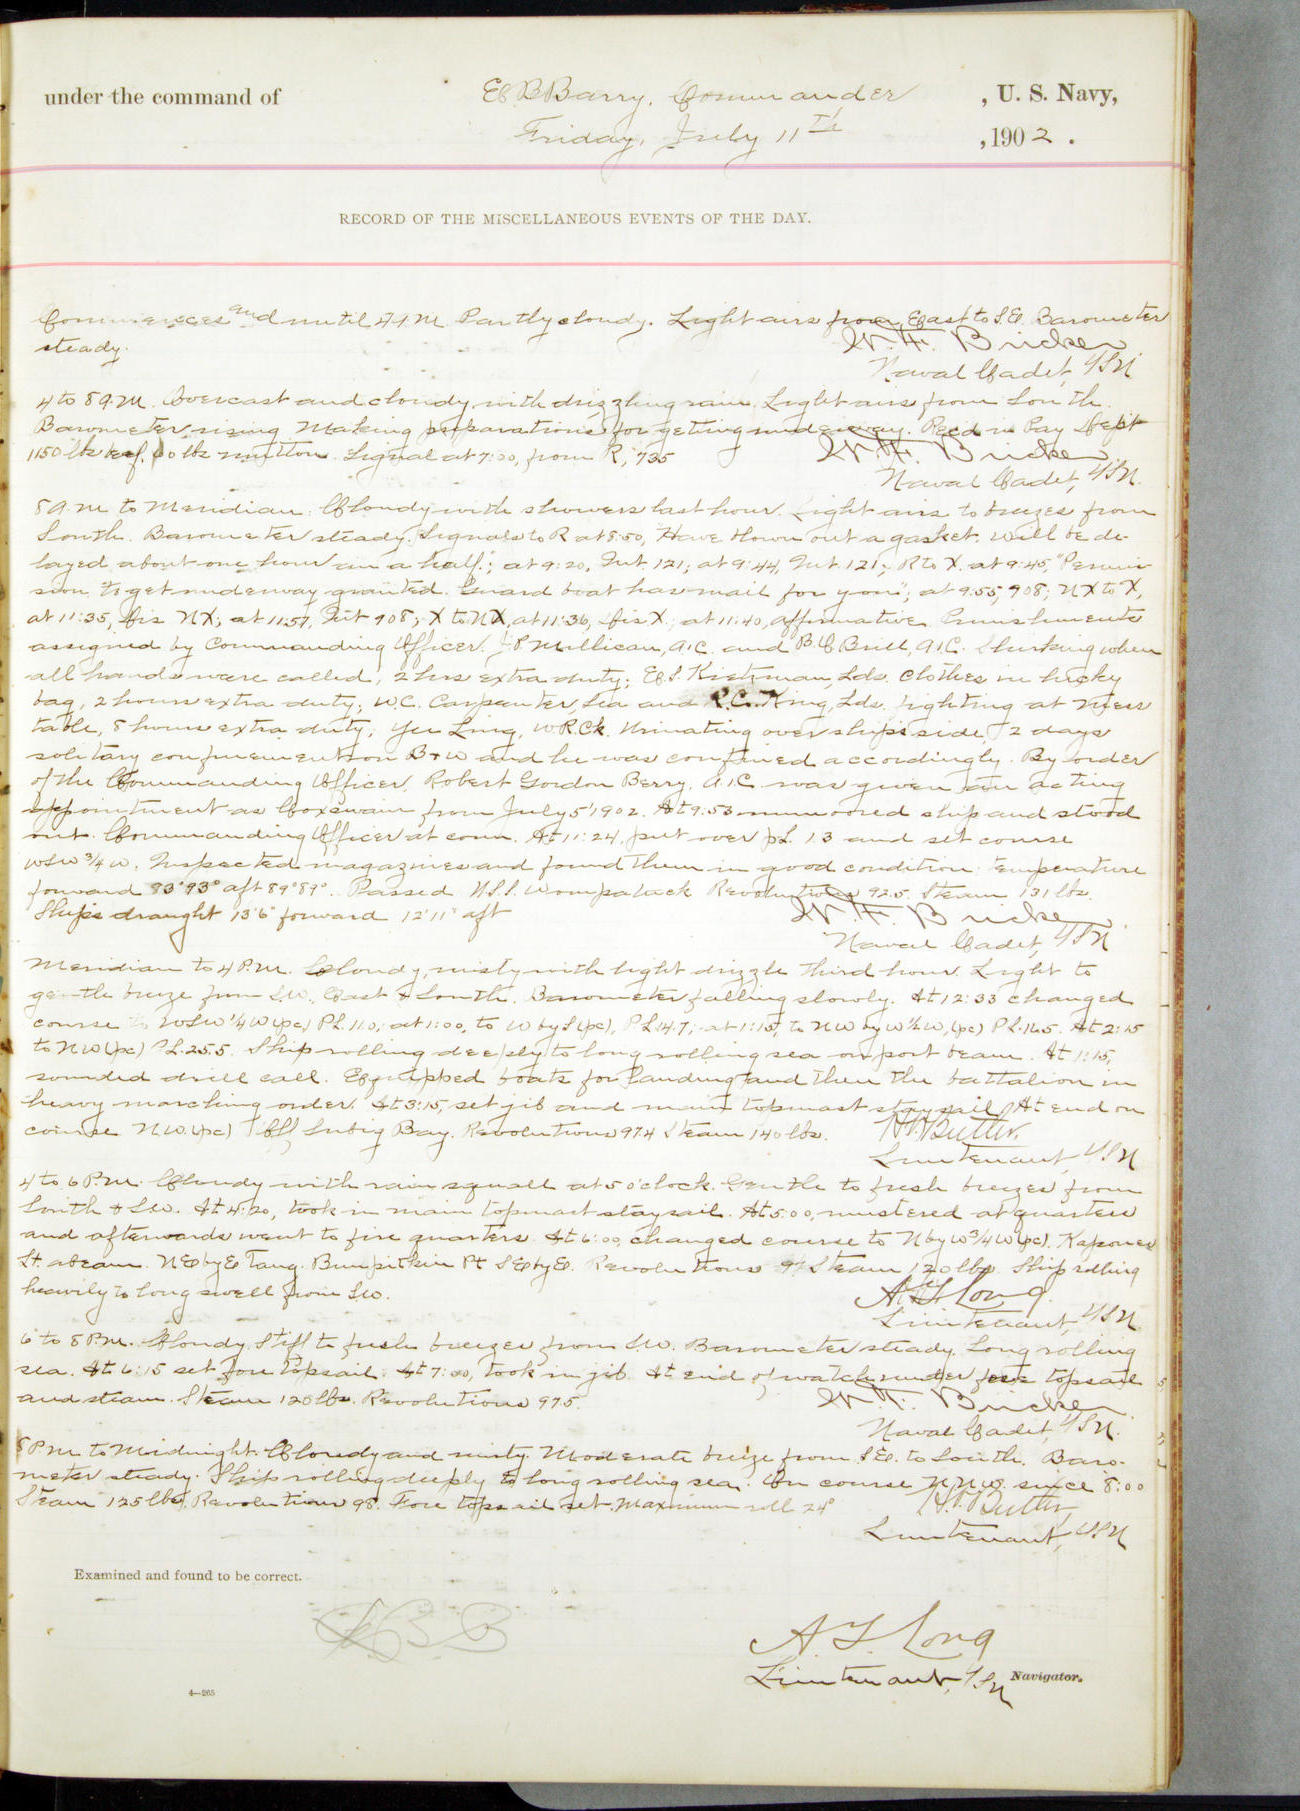 under the command of E B Barry, Commander , U. S. Navy,
Friday, July 11th , 1902 .
RECORD OF THE MISCELLANEOUS EVENTS OF THE DAY.
Commences and until 4 A.M. Partly cloudy. Light airs from East to S.E. Barometer
steady.
W. F. Bricker
Naval Cadet, USN
4 to 8 A.M. Overcast and cloudy with drizzling rain. Light airs from South.
Barometer rising. Making preparations for getting underway. Recd in Pay Dept
1150 lbs beef, lbs mutton. Signal at 7:00, from R, 735
W. F. Bricker
Naval Cadet, USN.
8 A.M. to Meridian. Cloudy with showers last hour. Light airs to breezes from
South. Barometer steady. Signals to R at 8:50, "Have blown out a gasket. Will be de-
layed about one hour an a half."; at 9:20, Int. 121; at 9:44, Int. 121; R to X. at 9:45, "Permis-
sion to get underway granted. Guard boat has mail for you"; at 9:55, 908; NX to X,
at 11:35, NX; at 11:57, Int 908; X to NX, at 11:36, X; at 11:40, affirmative. Punishments
assigned by Commanding Officer. J. P. Millican, A.1.C. and B. C. Brill, A.1.C. Shirking when
all hands were called, 2 hrs extra duty; E. S. Lds. Clothes in lucky
bag, 2 hours extra duty; W.C. Carpenter, Sea and R.C. King, Lds. fighting at mess
table, 8 hours extra duty; Yee Ling, W.R.Ck. Urinating over ship's side, 2 days
solitary confinement on B & W and he was confined accordingly. By order
of the Commanding Officer, Robert Gordon Berry, A.1.C. was given an acting
appointment as Coxswain from July 5' 1902. At 9:53 unmoored ship and stood
out. Commanding Officer at conn. At 11:24, put over p.L. 1.3 and set course
WSW 3/4 W. Inspected magazines and found them in good condition: temperature
forward 93° 93° aft 89° 89°. Passed U.S.S. Wompatuck. Revolutions 92.5. Steam 131 lbs.
Ship's draught 13' 6" forward 12' 11" aft
W. F. Bricker
Naval Cadet, USN
Meridian to 4 P.M. Cloudy, misty with light drizzle third hour. Light to
gentle breeze from S.W., East & South. Barometer falling slowly. At 12:33 changed
course to WSW 1/4 W (pc) P.L. 11.0; at 1:00, to W by S (pc), P.L. 14.7; at 1:15, to NW by W 1/2 W, (pc) P.L. 16.5. At 2:15
to NW (pc) P.L. 25.5. Ship rolling deeply to long rolling sea on port beam. At 1:15,
sounded drill call. Equipped boats for landing and then the battalion in
heavy marching order. At 3:15, set jib and main topmast staysail. At end on
course N.W. (pc) off Subig Bay. Revolutions 97.4 Steam 140 lbs.
Butler,
Lieutenant, USN
4 to 6 P.M. Cloudy with rain squall at 5 o'clock. Gentle to fresh breezes from
South & S.W. At 4:20, took in main topmast staysail. At 5:00, mustered at quarters
and afterwards went to fire quarters. At 6:00, changed course to N by W 3/4 W (pc). Kapones
It. abeam. NE by E Tang. Pt SE by E. Revolutions Steam 120 lbs. Ship rolling
heavily to long swell from S.W.
A. T. Long.
Lieutenant, USN
6 to 8 P.M. Cloudy. Stiff to fresh breezes from S.W. Barometer steady. Long rolling
sea. At 6:15 set fore topsail. At 7:00, took in jib. At end of watch under fore topsail
and steam. Steam 120 lbs. Revolutions 97.5.
W. F. Bricker
Naval Cadet, USN.
8 P.M. to Midnight. Cloudy and misty. Moderate breeze from S.E. to South. Baro-
meter steady. Ship rolling deeply to long rolling sea. On course NNW. since 8:00
Steam 125 lbs, Revolutions 98. Fore topsail set. Maximum roll 24°
Butler,
Lieutenant, USN
Examined and found to be correct.
EBB
A. T. Long
Lieutenant, USN Navigator.
4—265